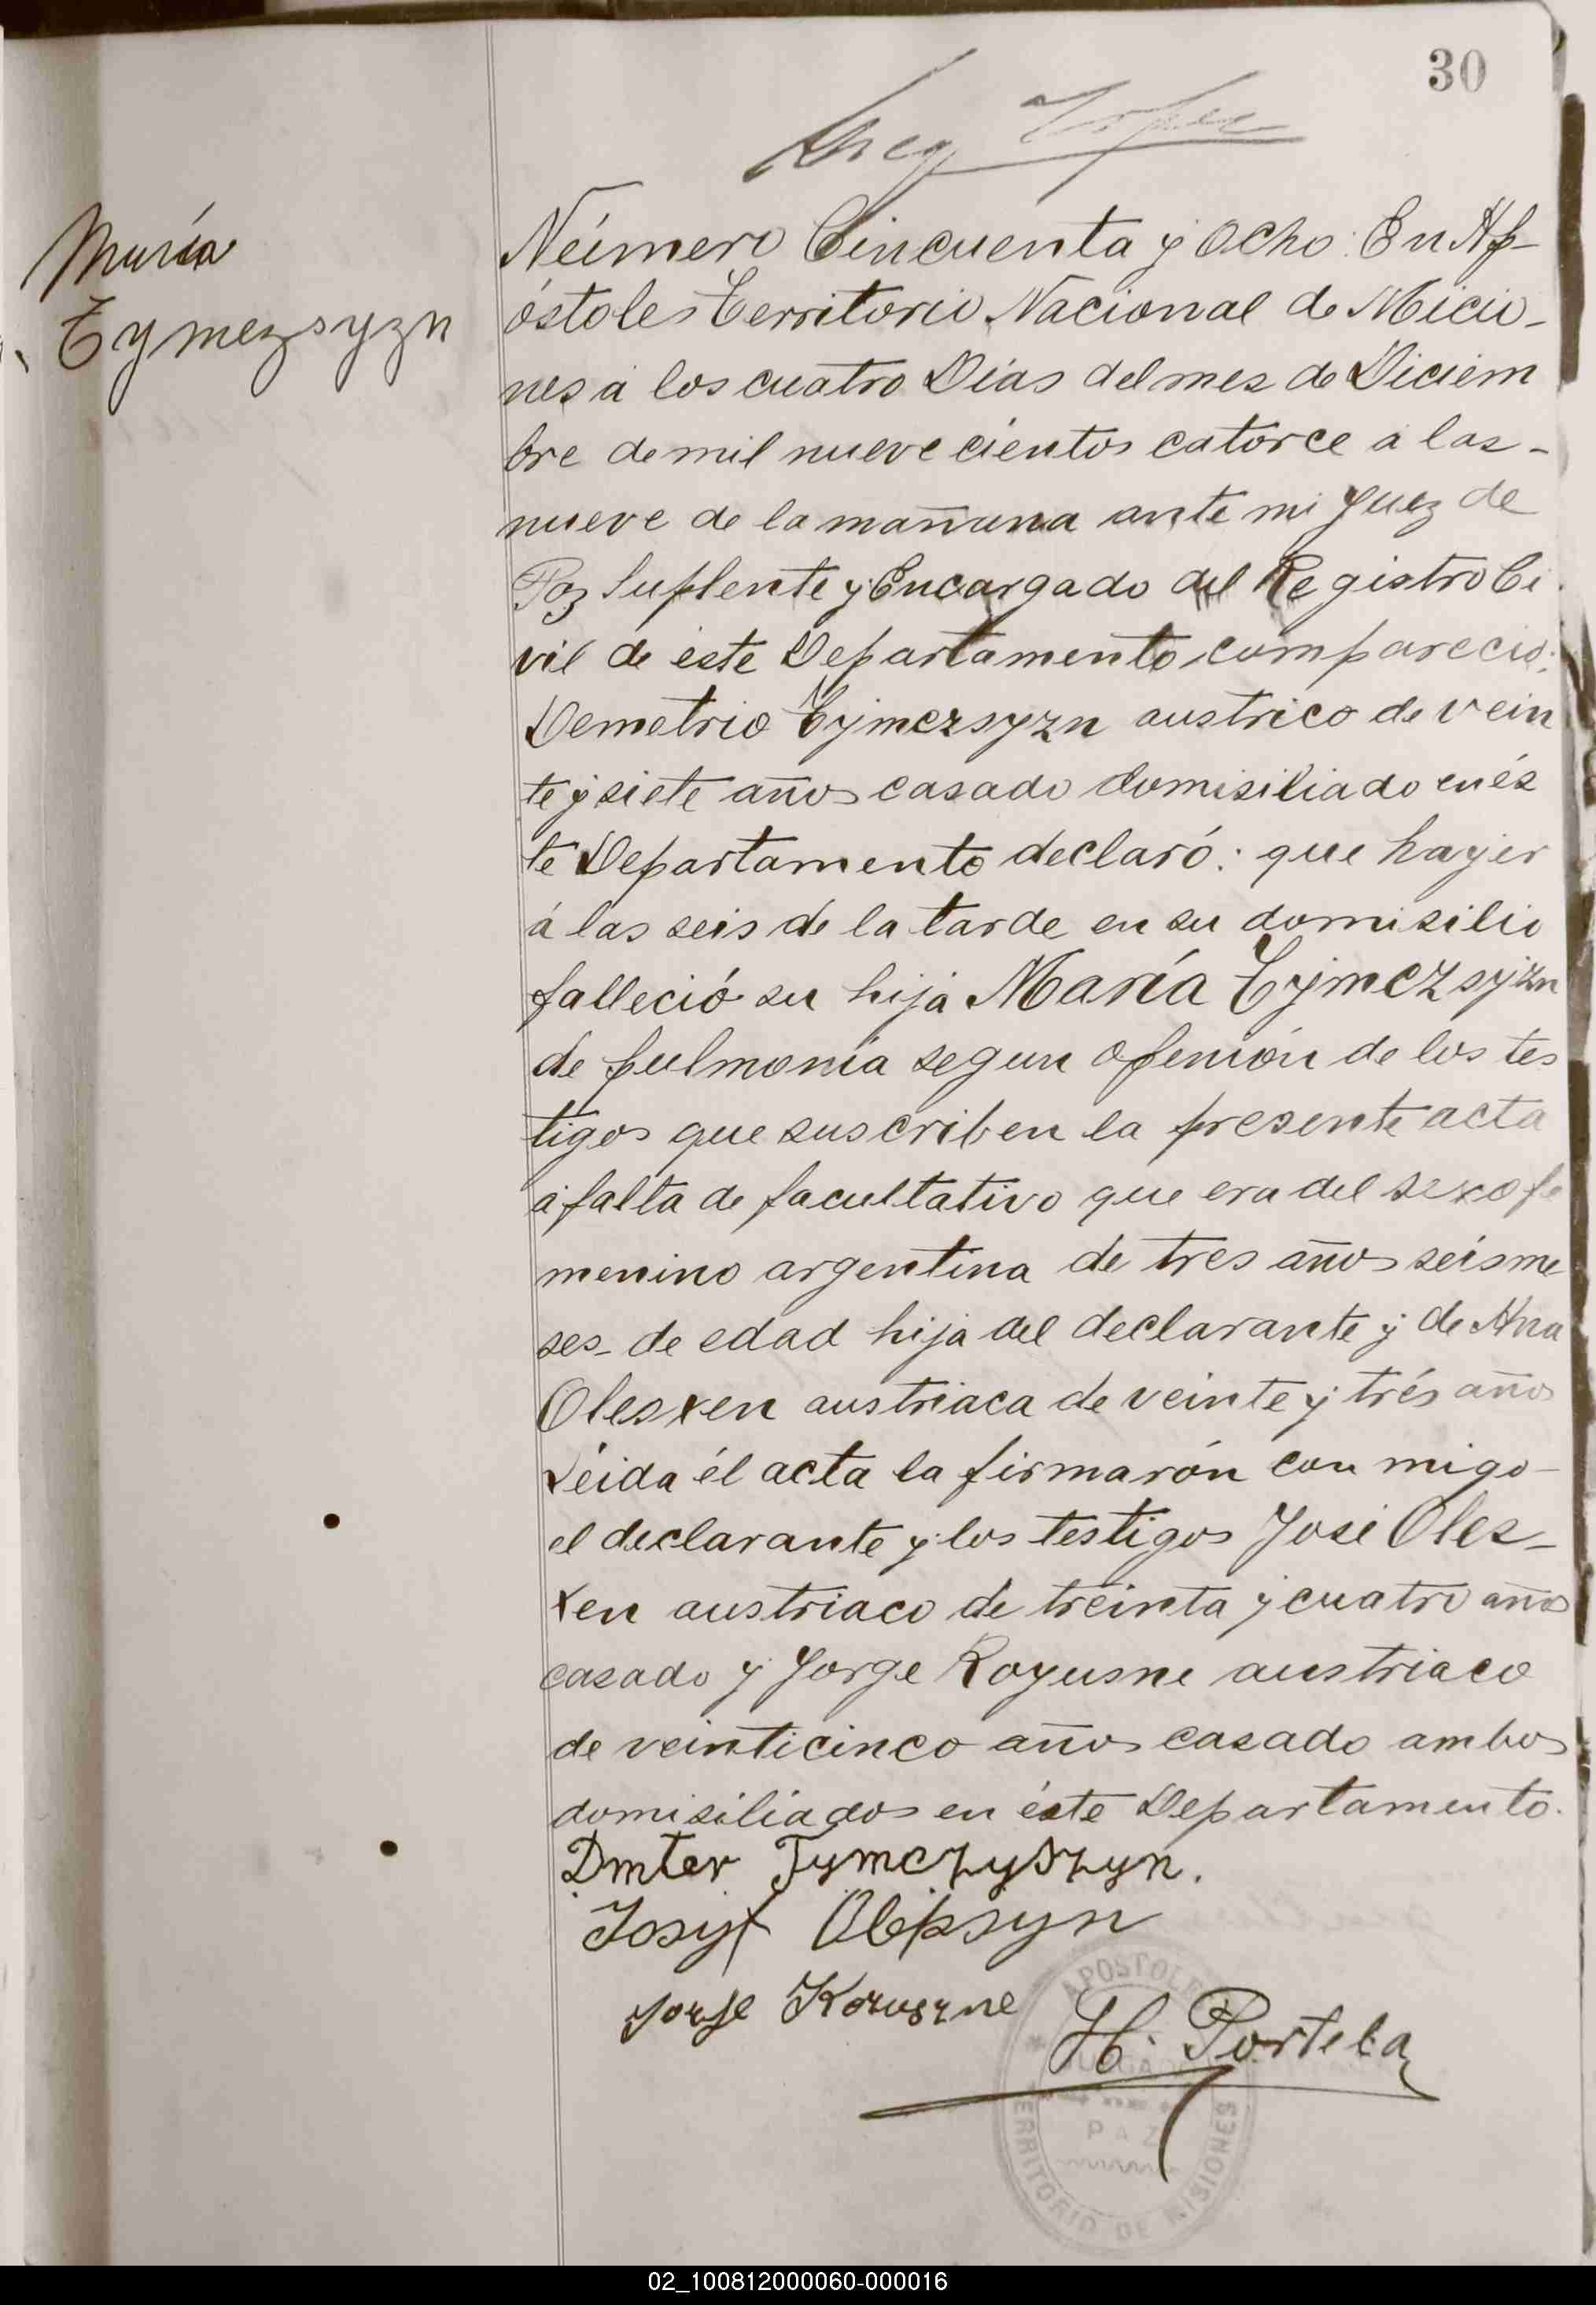 30
María
Tymezsyzn
Número Cincuenta y Ocho: En Ap-
óstoles Territorio Nacional de Micio-
nes á los cuatro Dias del mes de Diciem
bre de mil nueve cientos catorce á las-
nueve de la mañana ante mi Juez de
Paz Suplente y Encargado del Registro Ci
vil de éste Departamento compareció:
Demetrio Tymczsyzn austrico de vein
te y siete años casado domisiliado en és
te Departamento declaró: que hayer
á las seis de la tarde en su domisilio
falleció su hija María Tymczsyzn
de pulmonía segun openión de los tes
tigos que suscriben la presente acta
á falta de facultativo que era del sexo fe
menino argentina de tres años seis me
ses- de edad hija del declarante y de Ana
Olesxen austriaca de veinte y trés años
Léida él acta la firmarón con migo-
el declarante y los testigos José Oles-
xen austriaco de treinta y cuatro años
casado y Jorge Royusne austriaco
de veinticinco años casado ambos
domisiliados en éste Departamento.
Dmter Tymczyszyn.
Josyf
Jorge Koruszne
H. Portela
APOSTOLES
JUZGADO
PAZ
TERRITORIO DE MISIONES
02_100812000060-000016